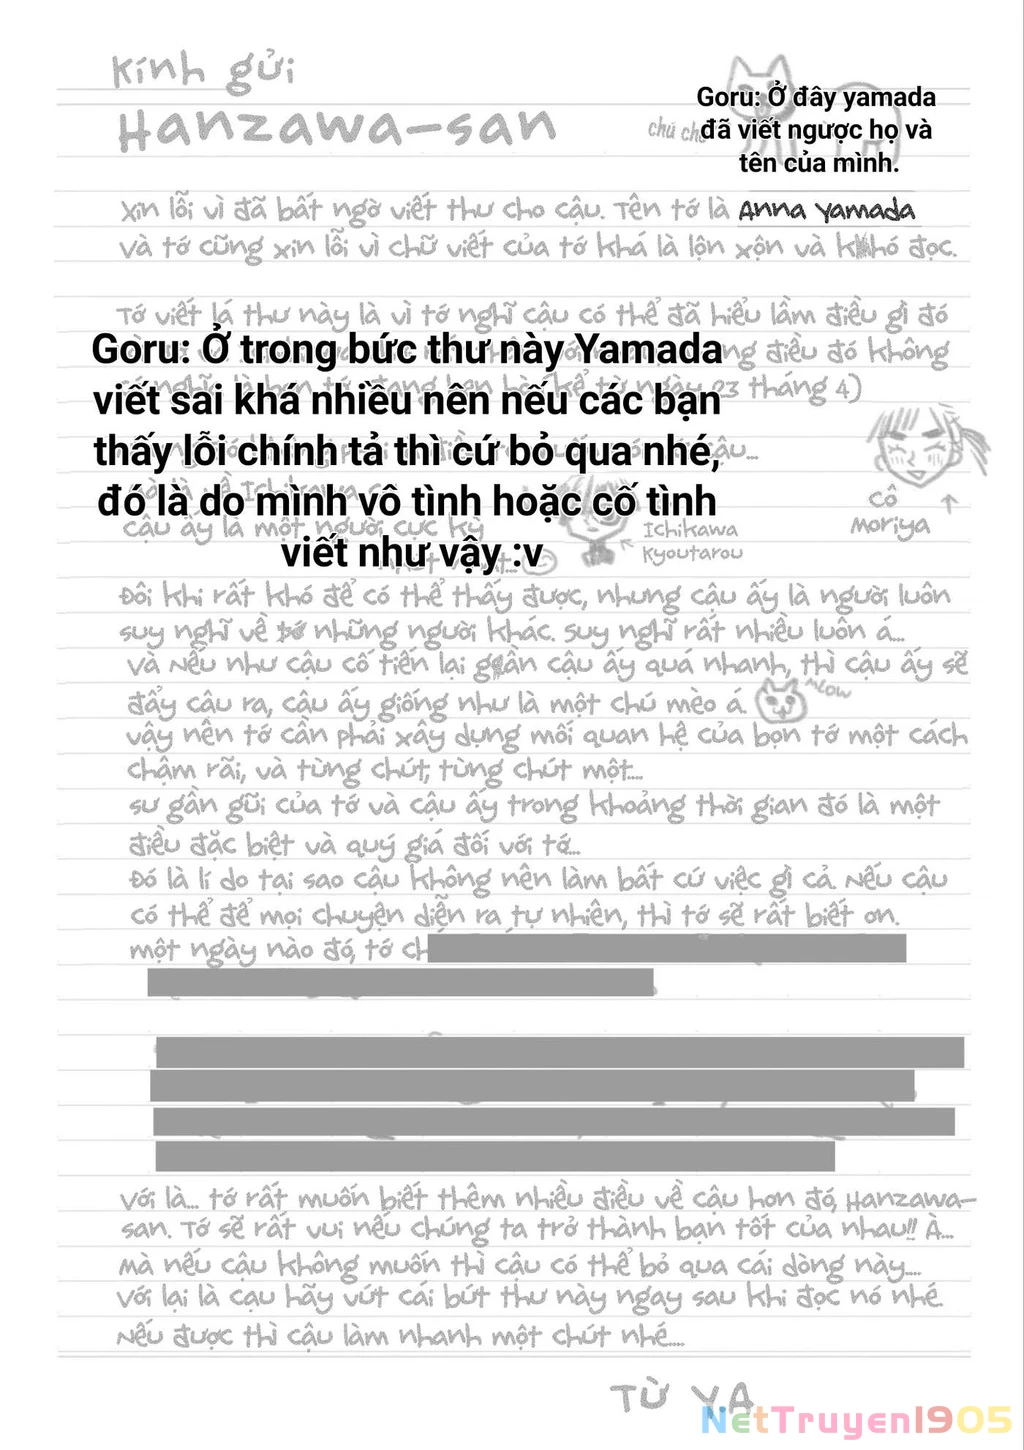 Kính gửi
Hanzawa-san
Goru: Ở đây yamada
đã viết ngược họ và
tên của mình.
chú ch
Xin lỗi vì đã bất ngờ viết thư cho cậu. Tên tớ là Anna Yamada
và tớ cũng xin lỗi vì chữ viết của tớ khá là lộn xộn và khó đọc.
Tớ viết lá thư này là vì tớ nghĩ cậu có thể đã hiểu lầm điều gì đó
điều đó không
ngày 23 tháng 4)
Goru: Ở trong bức thư này Yamada
viết sai khá nhiều nên nếu các bạn
thấy lỗi chính tả thì cứ bỏ qua nhé,
đó là do mình vô tình hoặc cố tình
viết như vậy :v
cậu ấy là một người cực kỳ
Ichikawa
Kyoutarou
Cô
Moriya
Đôi khi rất khó để có thể thấy được, nhưng cậu ấy là người luôn
suy nghĩ về những người khác. Suy nghĩ rất nhiều luôn á...
và Nếu như cậu cố tiến lại gần cậu ấy quá nhanh, thì cậu ấy sẽ
đẩy cậu ra, cậu ấy giống như là một chú mèo á.
Meow
vậy nên tớ cần phải xây dựng mối quan hệ của bọn tớ một cách
chậm rãi, và từng chút, từng chút một....
sư gần gũi của tớ và cậu ấy trong khoảng thời gian đó là một
điều đặc biệt và quý giá đối với tớ...
Đó là lí do tại sao cậu không nên làm bất cứ việc gì cả. Nếu cậu
có thể để mọi chuyện diễn ra tự nhiên, thì tớ sẽ rất biết on.
một ngày nào đó, tớ ch
Với là... tớ rất muốn biết thêm nhiều điều về cậu hơn đó, Hanzawa-
san. Tớ sẽ rất vui nếu chúng ta trở thành bạn tốt của nhau!! À...
mà nếu cậu không muốn thì cậu có thể bỏ qua cái dòng này....
Với lại là cạu hãy vứt cái bút thư này ngay sau khi đọc nó nhé.
Nếu được thì cậu làm nhanh một chút nhé....
Từ YA
NetTruyen1905